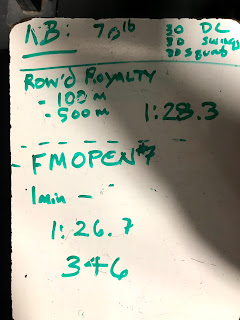 KB: 70lb
30 DC
30 SWINGS
30 SQUATS
ROW'D ROYALTY
- 100m
- 500m 1:28.3
FMOPEN #7
1min -
1:26.7
346